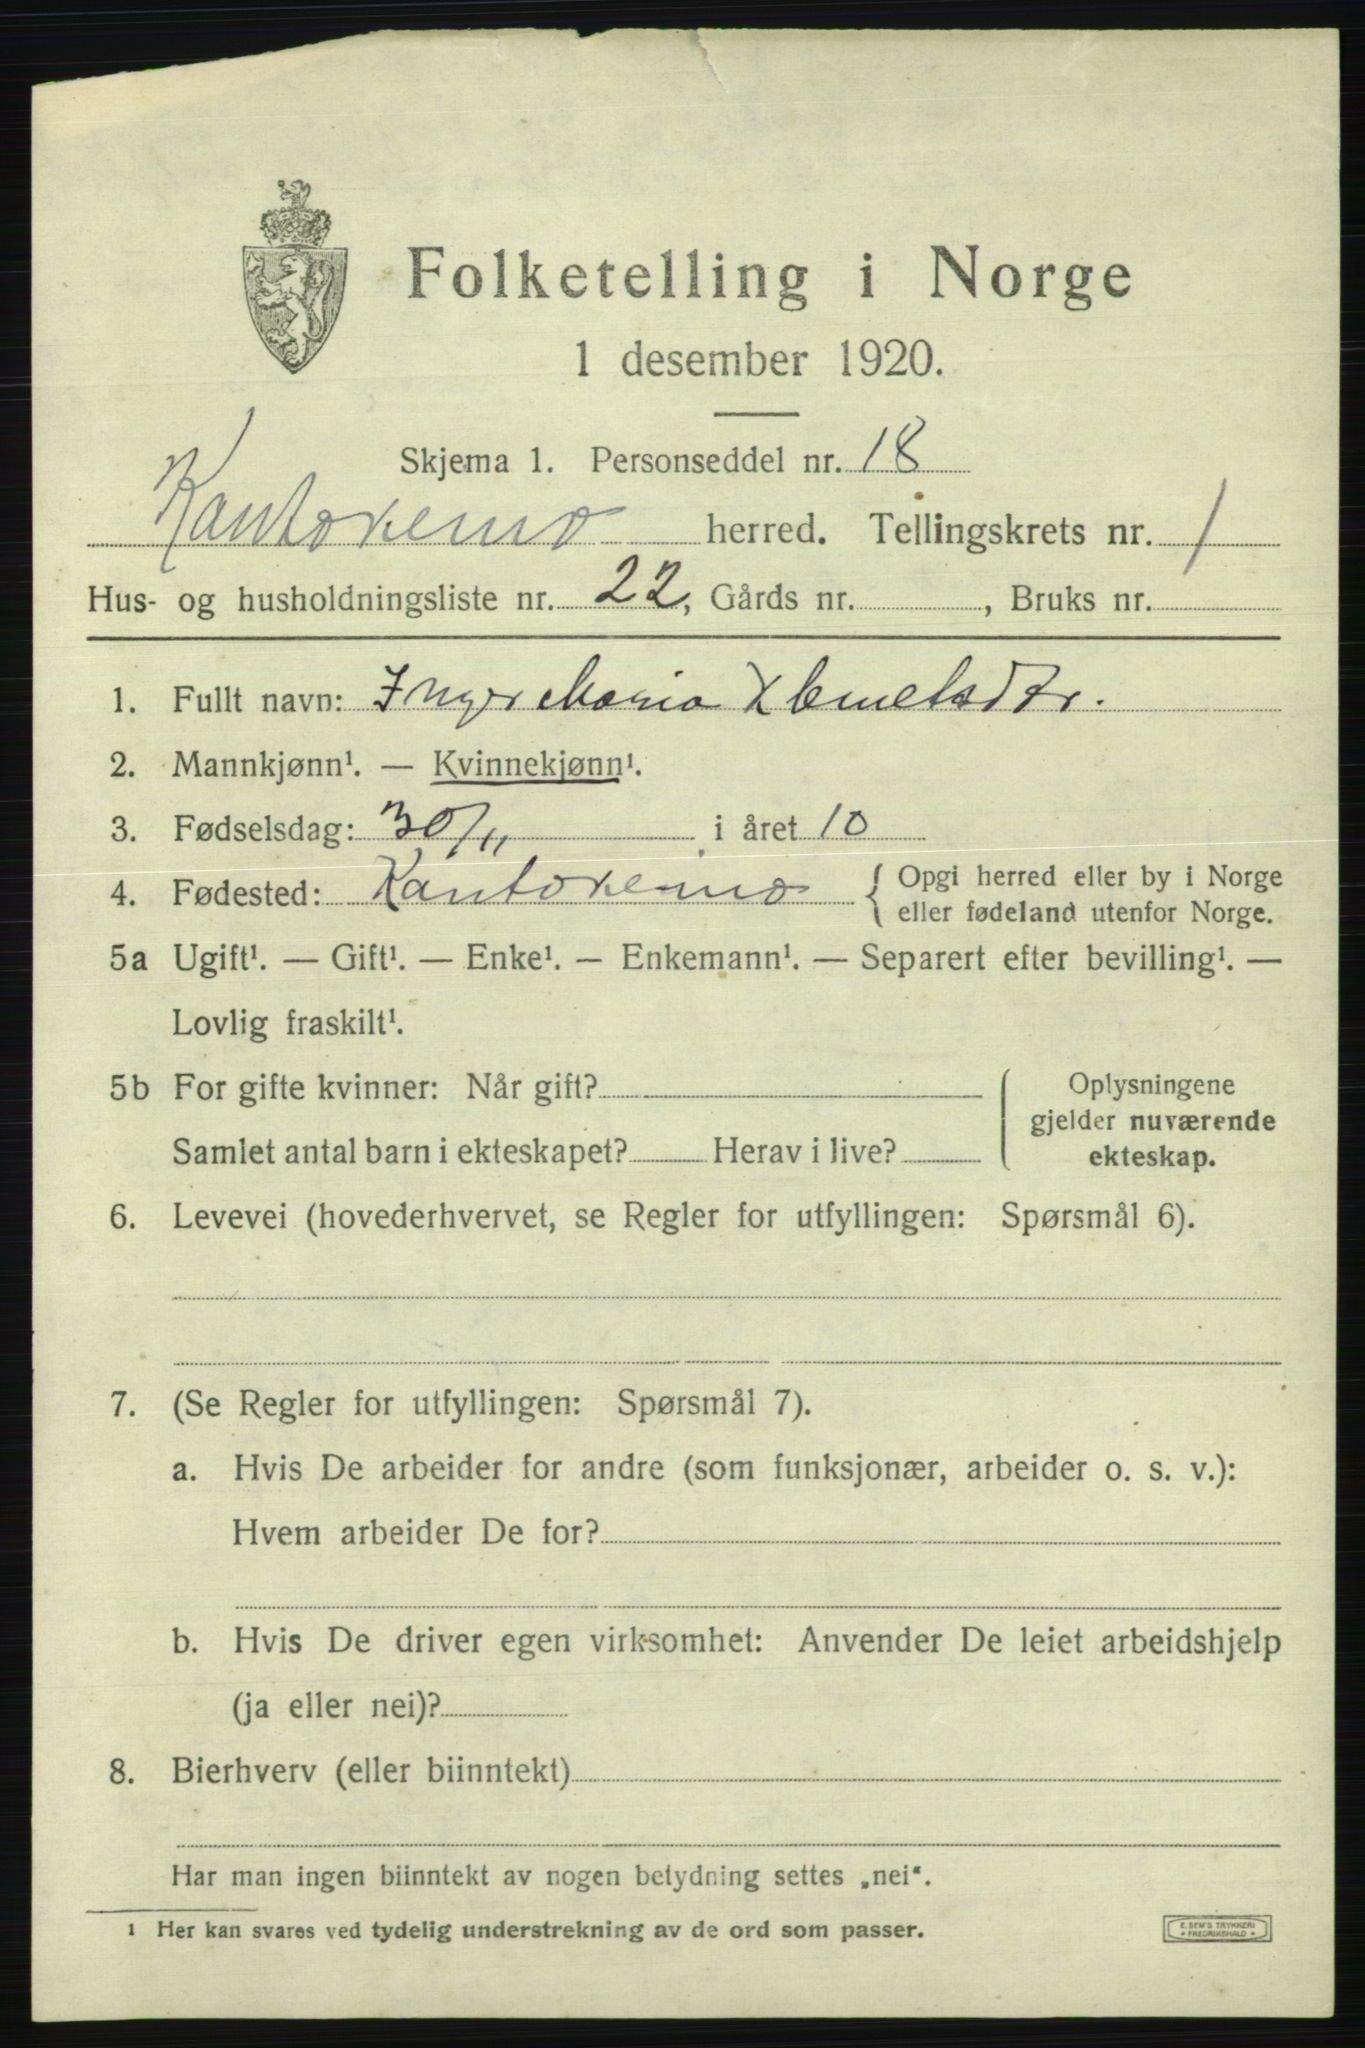 Folketelling i Norge
1 desember 1920.
Skjema 1. Personseddel nr. 18
Kautokeino herred. Tellingskrets nr. 1
Hus- og husholdningsliste nr. 22, Gårds nr. , Bruks nr.
1. Fullt navn: Inger Maria
2. Mannkjønn¹. — Kvinnekjønn¹.
3. Fødselsdag: 30/11 i året 10
4. Fødested: Kautokeino { Opgi herred eller by i Norge
eller fødeland utenfor Norge.
5a Ugift¹. — Gift¹. — Enke¹. — Enkemann¹. — Separert efter bevilling¹. —
Lovlig fraskilt¹.
5b For gifte kvinner: Når gift?
Samlet antal barn i ekteskapet? Herav i live?
Oplysningene
gjelder nuværende
ekteskap.
6. Levevei (hovederhvervet, se Regler for utfyllingen: Spørsmål 6).
7. (Se Regler for utfyllingen: Spørsmål 7).
a. Hvis De arbeider for andre (som funksjonær, arbeider o. s. v.):
Hvem arbeider De for?
b. Hvis De driver egen virksomhet: Anvender De leiet arbeidshjelp
(ja eller nei)?
8. Bierhverv (eller biinntekt)
Har man ingen biinntekt av nogen betydning settes „nei“.
¹ Her kan svares ved tydelig understrekning av de ord som passer.
E. SEM'S TRYKKERI
• FREDRIKSHALD •